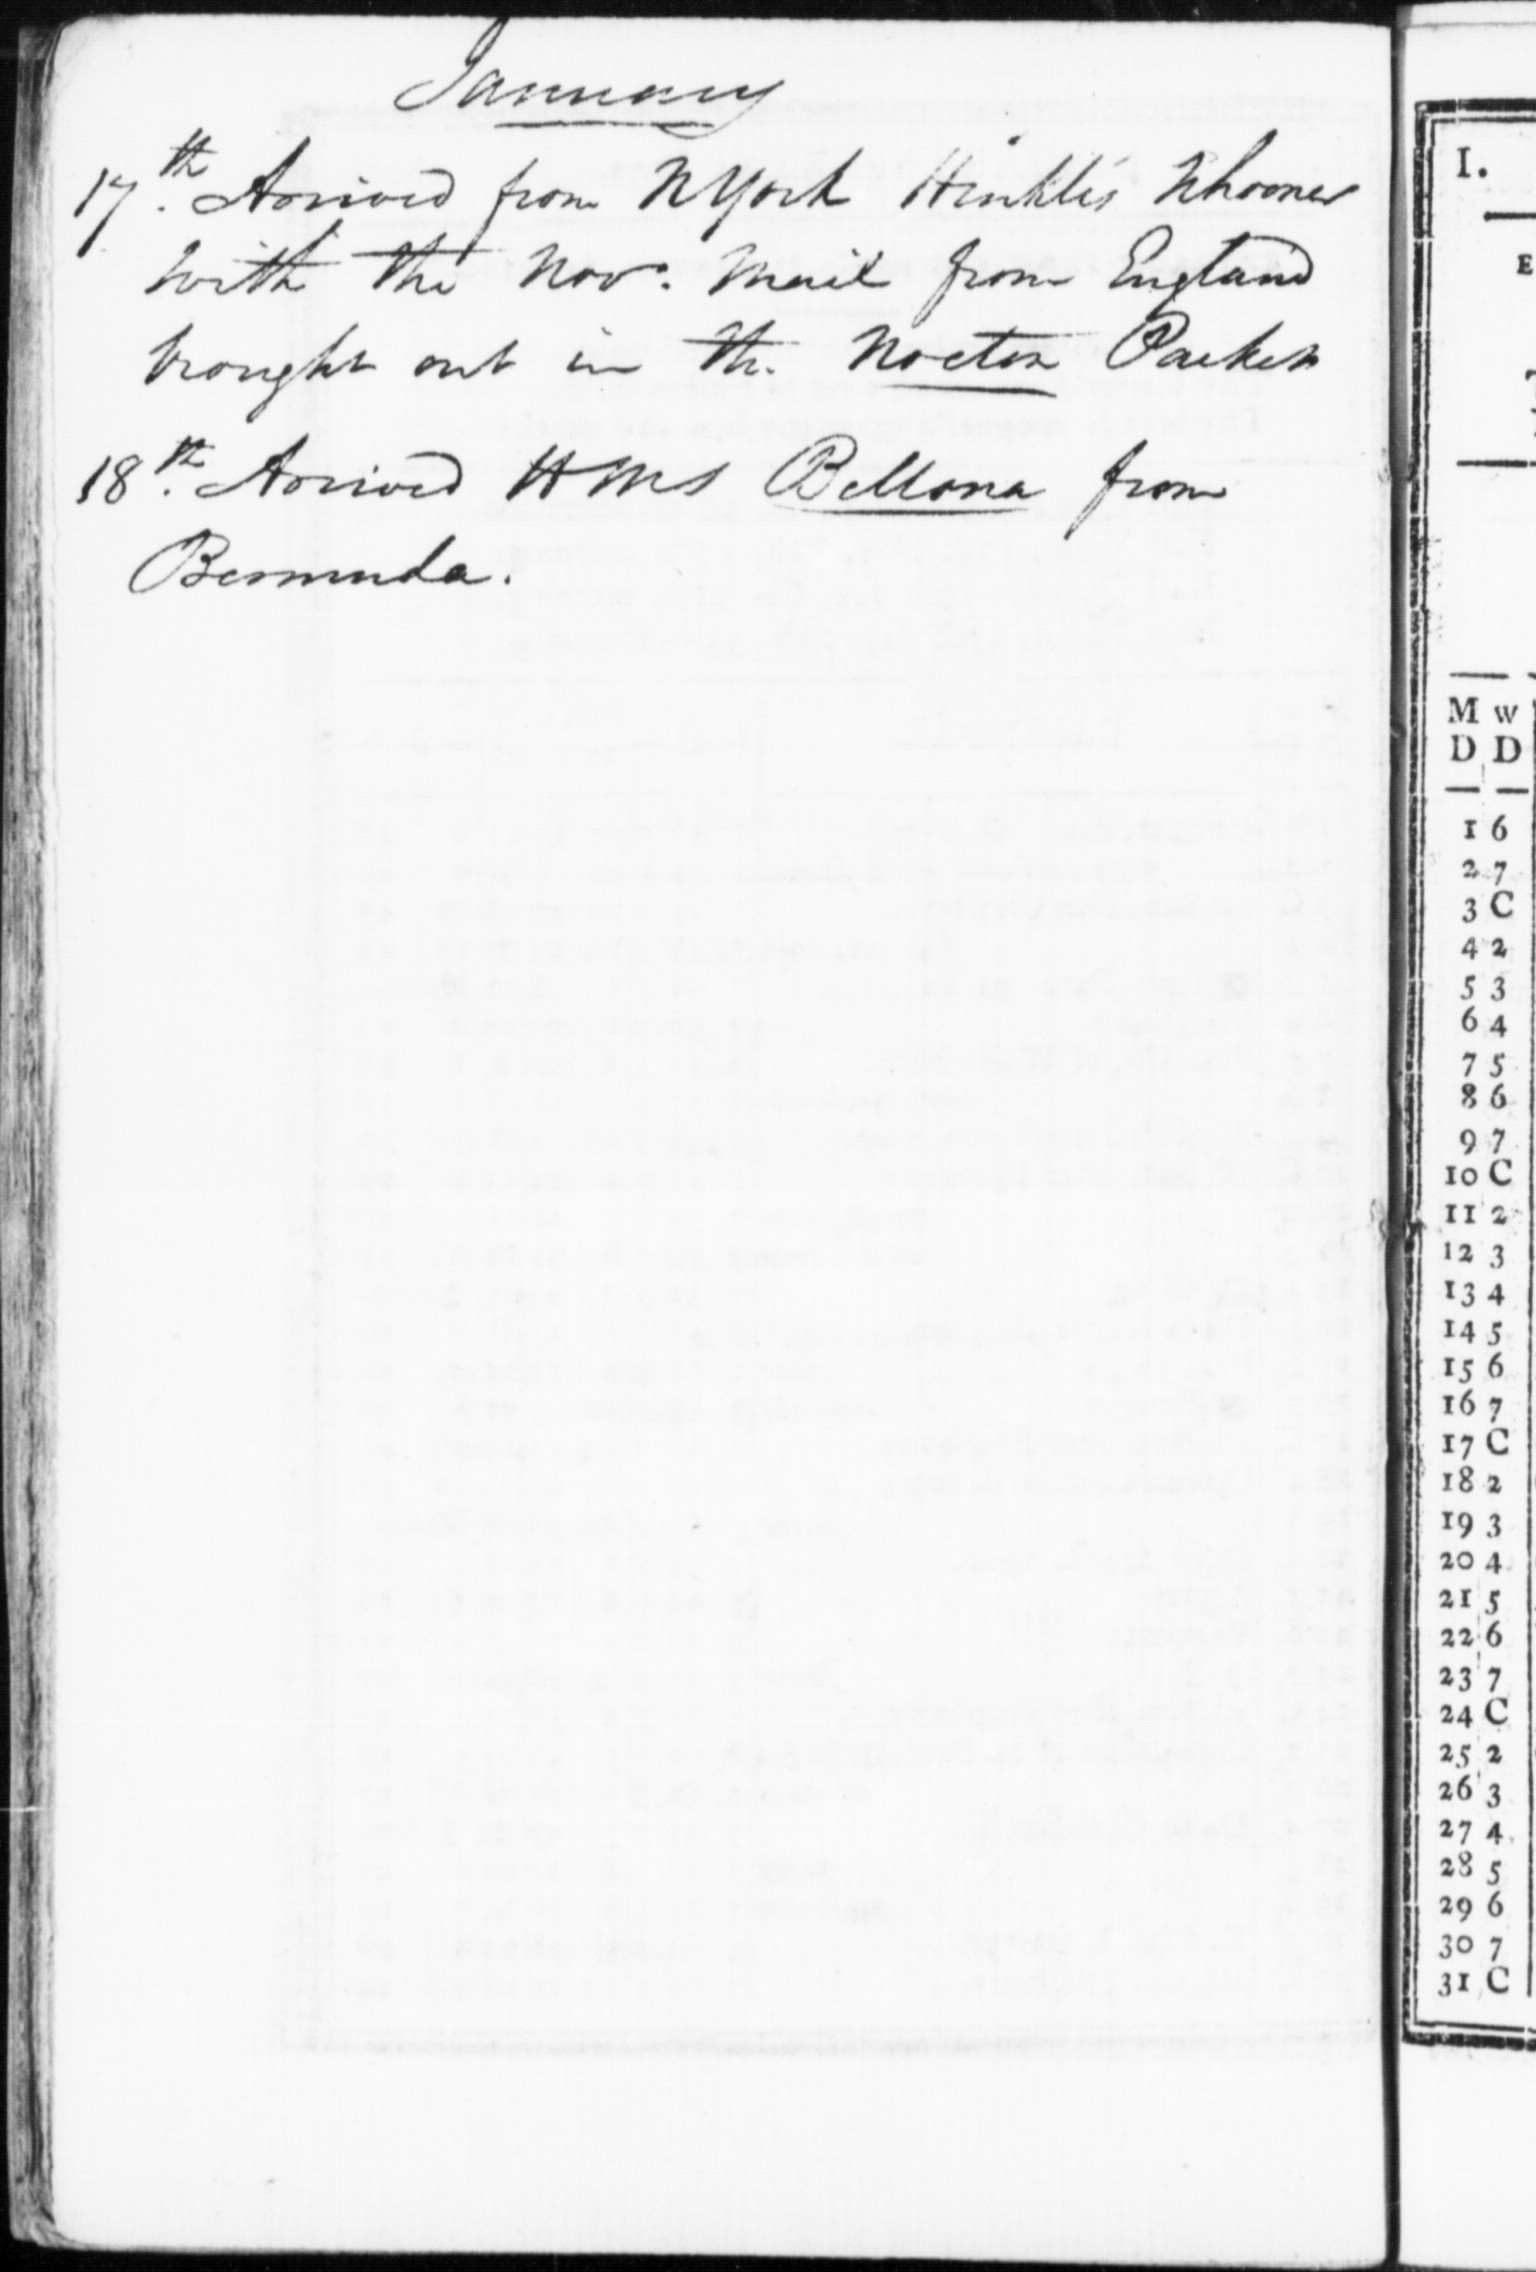 January
17th. Arrived from NYork Hinkle's Schooner
with the Novr. Mail from England
brought out in the Nocton Packet
18th. Arrived HMS Bellona from
Bermuda.
I.
M W
D D
1 6
2 7
3 C
4 2
5 3
6 4
7 5
8 6
9 7
10 C
11 2
12 3
13 4
14 5
15 6
16 7
17 C
18 2
19 3
20 4
21 5
22 6
23 7
24 C
25 2
26 3
27 4
28 5
29 6
30 7
31 C